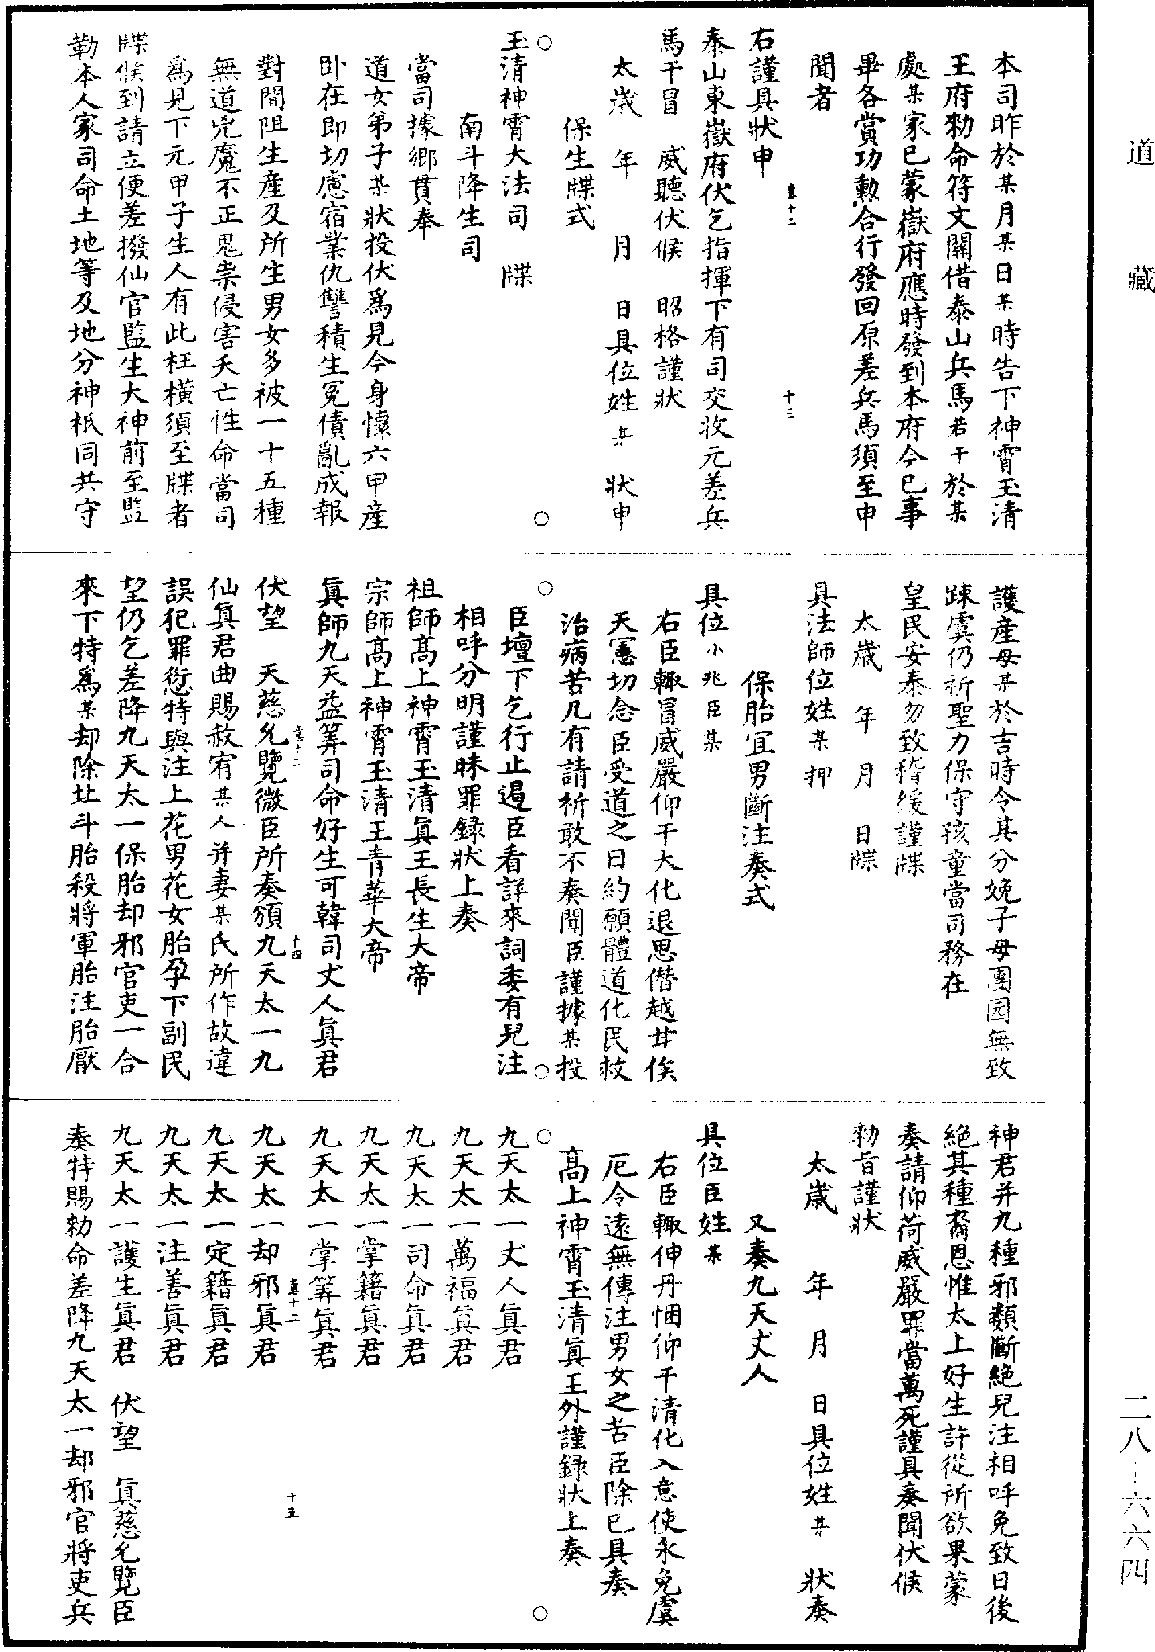 道藏
本司昨於某月某日某時告下神霄玉清
王府勑命符文關借泰山兵馬若干於某
處某家已蒙嶽府應時發到本府今已事
畢各賞功勳合行發回原差兵馬須至申
聞者
右謹具狀申
泰山東嶽府伏乞指揮下有司交收元差兵
馬干冒　威聽伏候　昭格謹狀
太歲　年　月　日具位姓某　狀申
保生牒式
玉清神霄大法司　牒
南斗降生司
當司據鄉貫奉
道女弟子某狀投伏爲見今身懷六甲產
卧在即切慮宿業仇讐積生冤債亂成報
對間阻生產及所生男女多被一十五種
無道兇魔不正鬼祟侵害夭亡性命當司
爲見下元甲子生人有此枉橫須至牒者
牒候到請立便差撥仙官監生大神前至監
勒本人家司命土地等及地分神祇同共守
護產母某於吉時令其分娩子母團圓無致
踈虞仍祈聖力保守孩童當司務在
皇民安泰勿致稽緩謹牒
太歲　年　月　日牒
具法師位姓某押
保胎宜男斷注奏式
具位小兆臣某
右臣輙冒威嚴仰干大化退思僭越甘俟
天憲切念臣受道之日約願體道化民救
治病苦凡有請祈敢不奏聞臣謹據某投
臣壇下乞行止遏臣看詳來詞委有兒注
相呼分明謹昧罪録狀上奏
祖師高上神霄玉清眞王長生大帝
宗師高上神霄玉清王青華大帝
眞師九天益筭司命好生可韓司丈人眞君
伏望　天慈允覽微臣所奏頒九天太一九
仙眞君曲賜赦宥某人并妻某氏所作故違
誤犯罪愆特與注上花男花女胎孕下副民
望仍乞差降九天太一保胎却邪官吏一合
來下特爲某却除北斗胎殺將軍胎注胎厭
神君并九種邪類斷絶兒注相呼免致日後
絶其種裔恩惟太上好生許從所欲果蒙
奏請仰荷威嚴罪當萬死謹具奏聞伏候
勑旨謹狀
太歲　年　月　日具位姓某　狀奏
又奏九天丈人
具位臣姓某
右臣輙伸丹悃仰干清化入意使永免虞
厄令遠無傳注男女之苦臣除已具奏
高上神霄玉清眞王外謹録狀上奏
九天太一丈人眞君
九天太一萬福眞君
九天太一司命眞君
九天太一掌籍眞君
九天太一掌筭眞君
九天太一却邪眞君
九天太一定籍眞君
九天太一注善眞君
九天太一護生眞君　伏望　眞慈允覽臣
奏特賜勑命差降九天太一却邪官將吏兵
二八—六六四